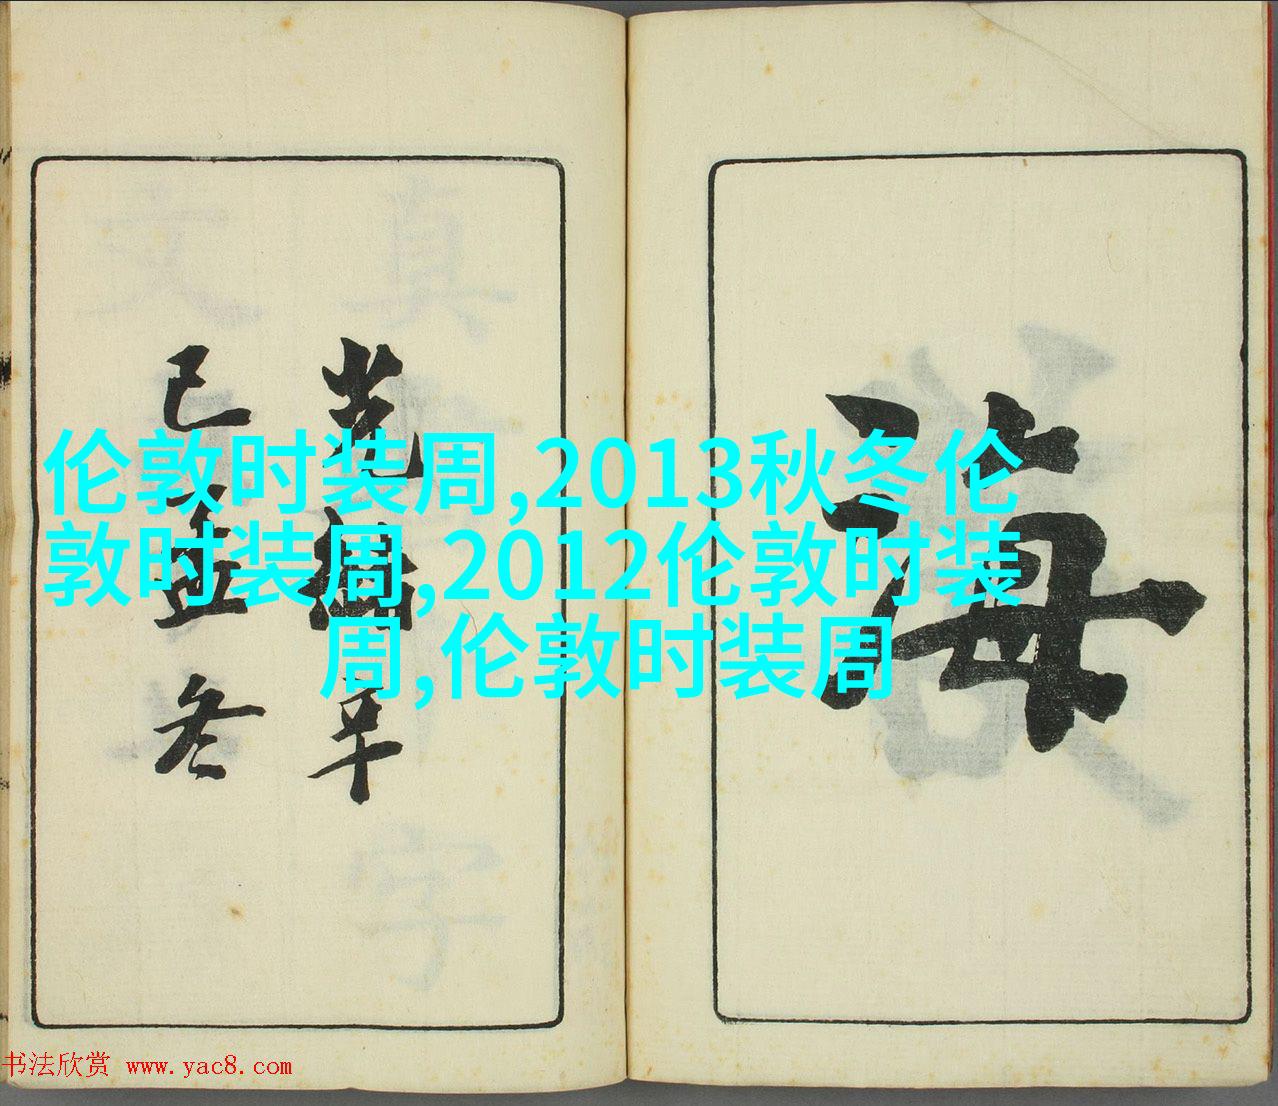 伦敦时装周,2013秋冬伦
敦时装周,2012伦敦时装
周,伦敦时装周
海
己 冬
书法欣赏 www.yac8.com